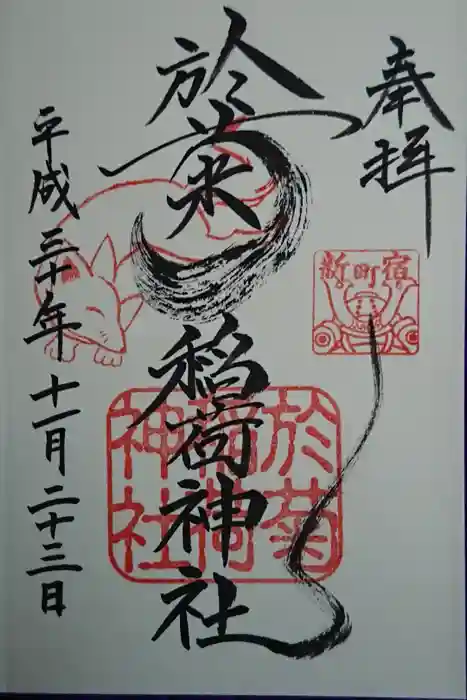 奉拝
新町宿
於菊稲荷神社
於菊稲荷神社
平成三十年十一月二十三日